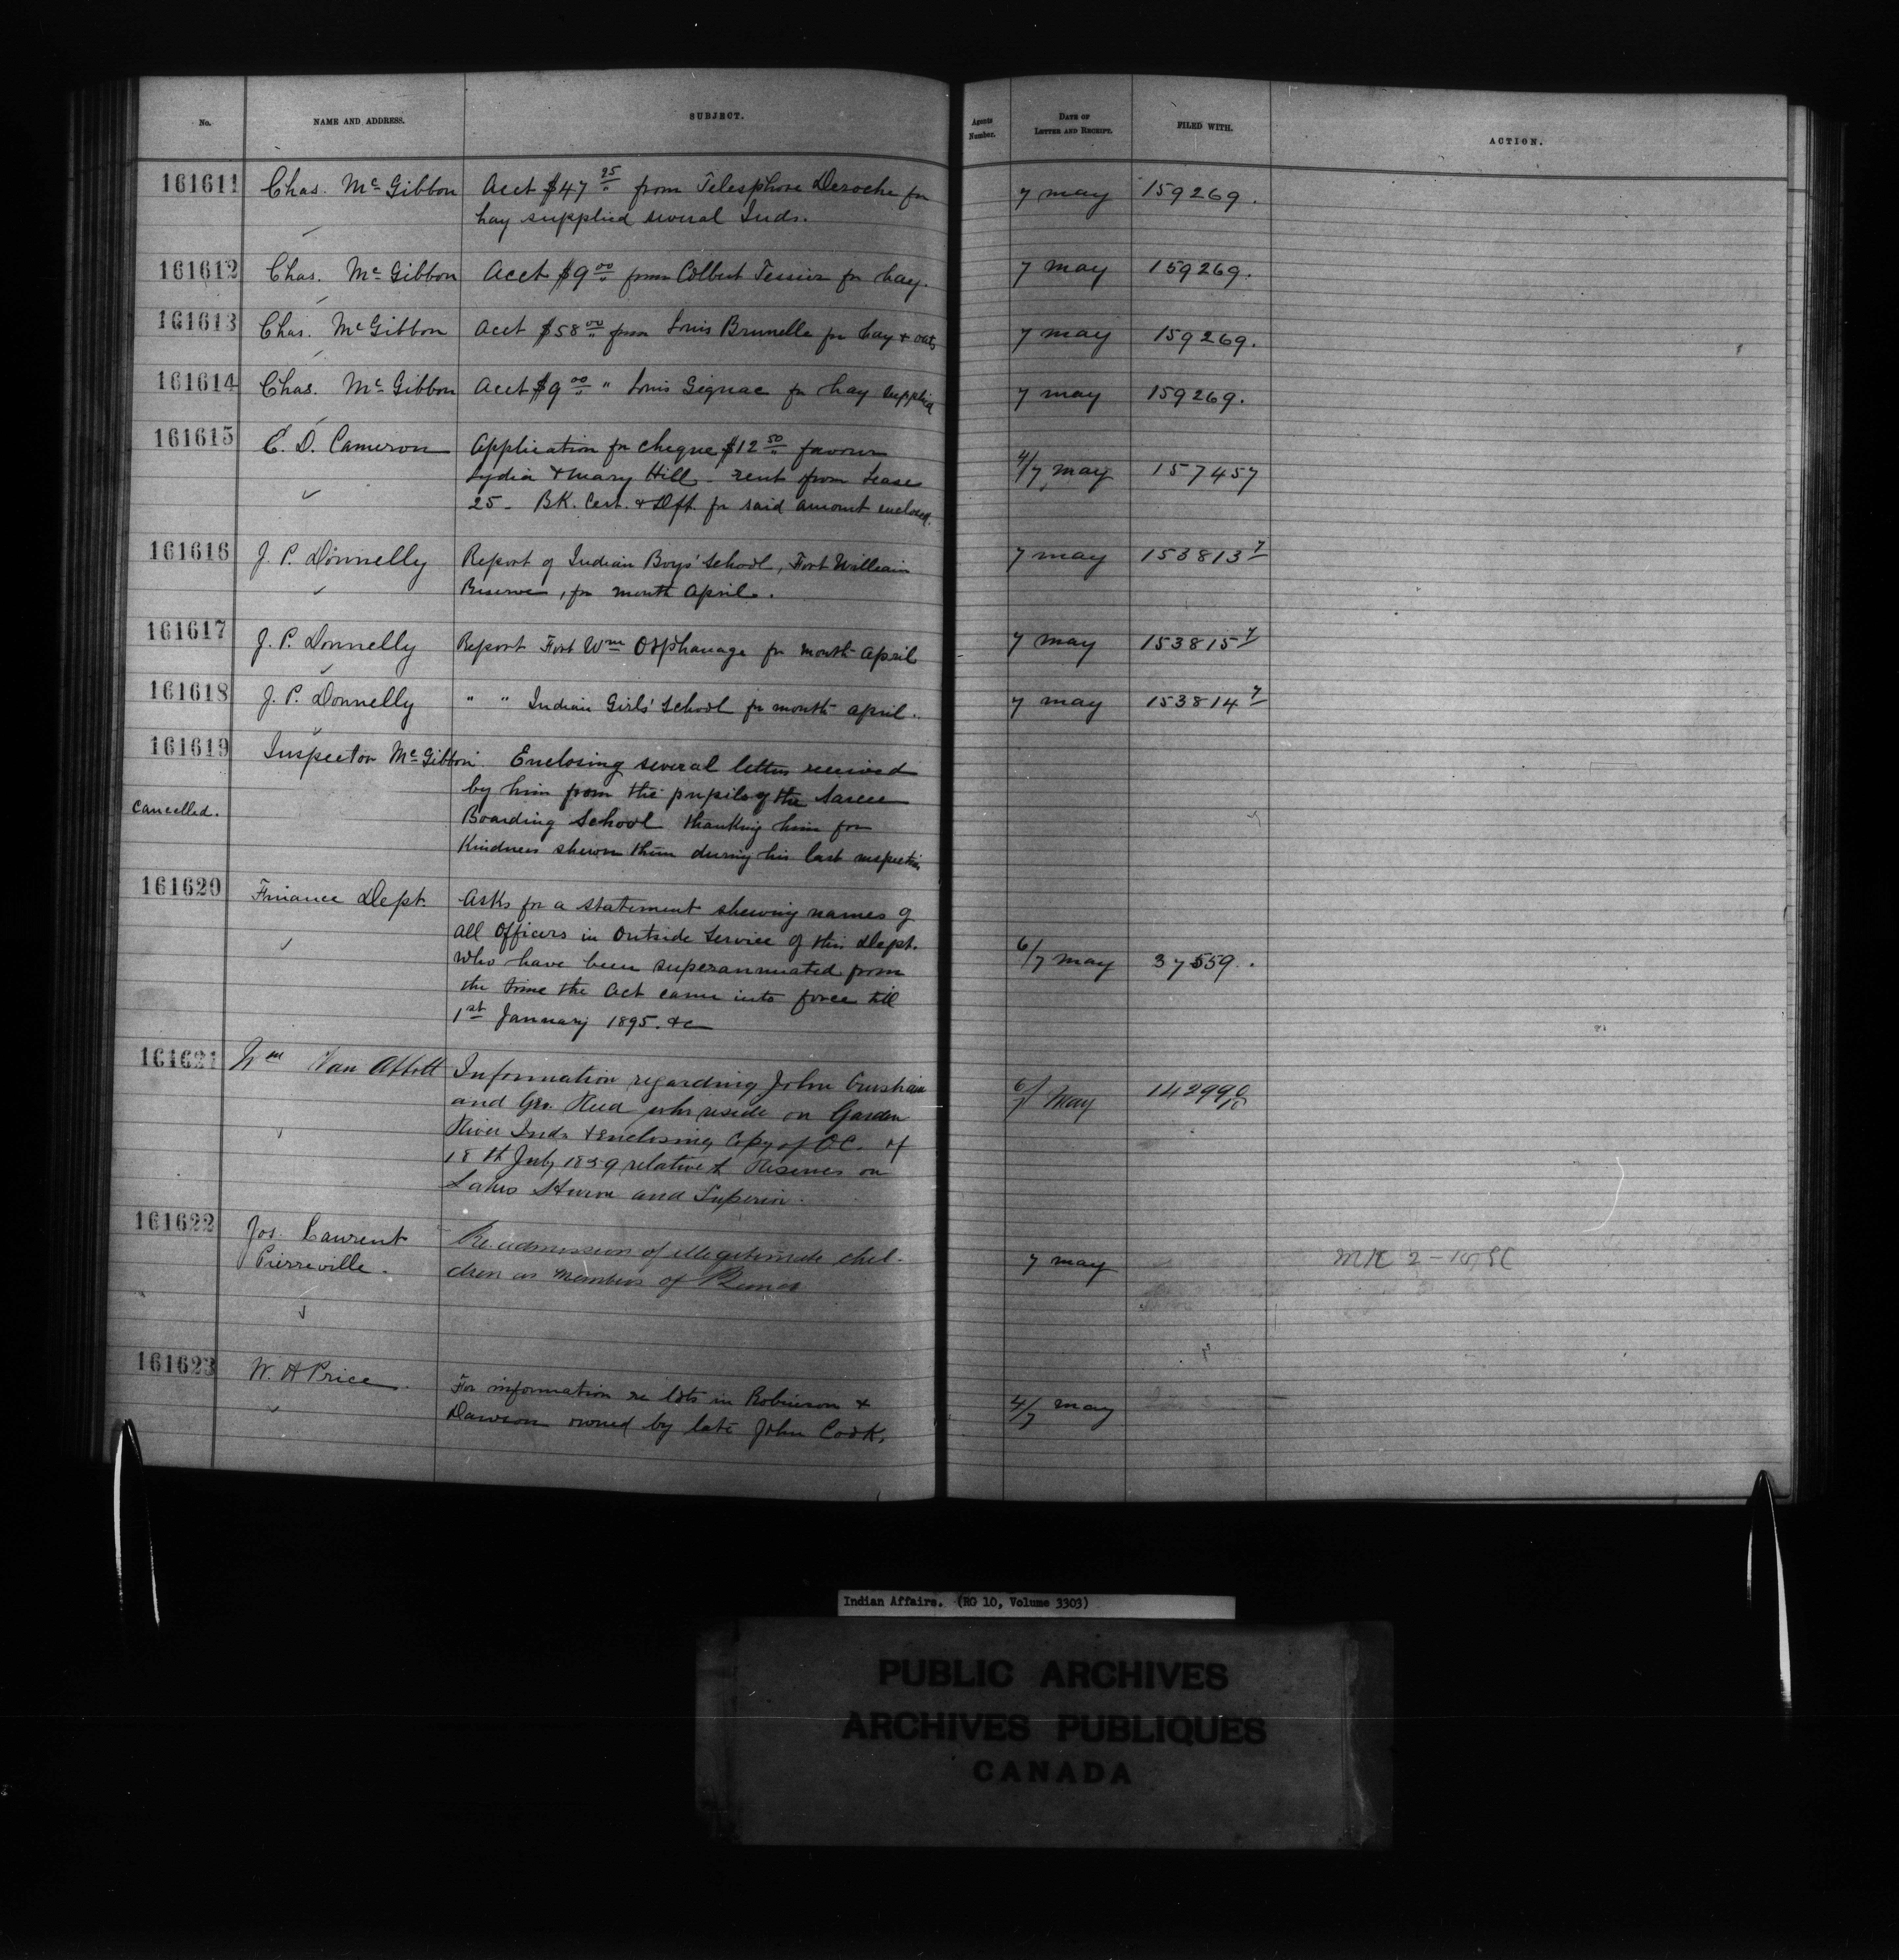 No. NAME AND ADDRESS. SUBJECT. Agents Number. DATE OF LETTER AND RECEIPT. FILED WITH. ACTION.
161611 Chas. McGibbon Acct $47 25 from Telesphore Deroche for 7 May 159269.
hay supplied several Inds.
161612 Chas. McGibbon Acct $9 00 from Colbert Tessier for hay. 7 May 159269.
161613 Chas. McGibbon Acct $58 00 from Louis Brunelle for hay & oats 7 May 159269.
161614 Chas. McGibbon Acct $9 00 " Louis Gignac for hay supplied 7 May 159269.
161615 E. D. Cameron Application for cheque $12 50 favour
Lydia & Mary Hill - rent from Lease 4/7 May 157457
25 - BK. Cert. & Dft. for said amount enclosed.
161616 J. P. Donnelly Report of Indian Boys' School, Fort William 7 May 153813 7
Reserve, for month April.
161617 J. P. Donnelly Report Fort Wm Orphanage for month April 7 May 153815 7
161618 J. P. Donnelly " " Indian Girls' School for month April. 7 May 153814 7
161619 Inspector McGibbon. Enclosing several letters received
by him from the pupils of the Sarcee
Cancelled. Boarding School thanking him for
Kindness shewn them during his last inspection
161620 Finance Dept. Asks for a statement shewing names of
all Officers in Outside Service of this Dept.
who have been superannuated from 6/7 May 37559.
the time the Act came into force till
1st January 1895. &c
161621 Wm Van Abbott Information regarding John
and Geo. Reed who reside on Garden 6/7 May 142990 10
River Inds & enclosing Copy of OC. of
18th July 1859 relative to Reserves on
Lakes Huron and Superior.
161622 Jos. Laurent Re. admission of illegitimate chil-
Pierreville. dren as members of Band 7 May
161623 W. A Price. For information re lots in Robinson & 4/7 May
Dawson owned by late John Cook.
Indian Affairs. (RG 10, Volume 3303)
PUBLIC ARCHIVES
ARCHIVES PUBLIQUES
CANADA